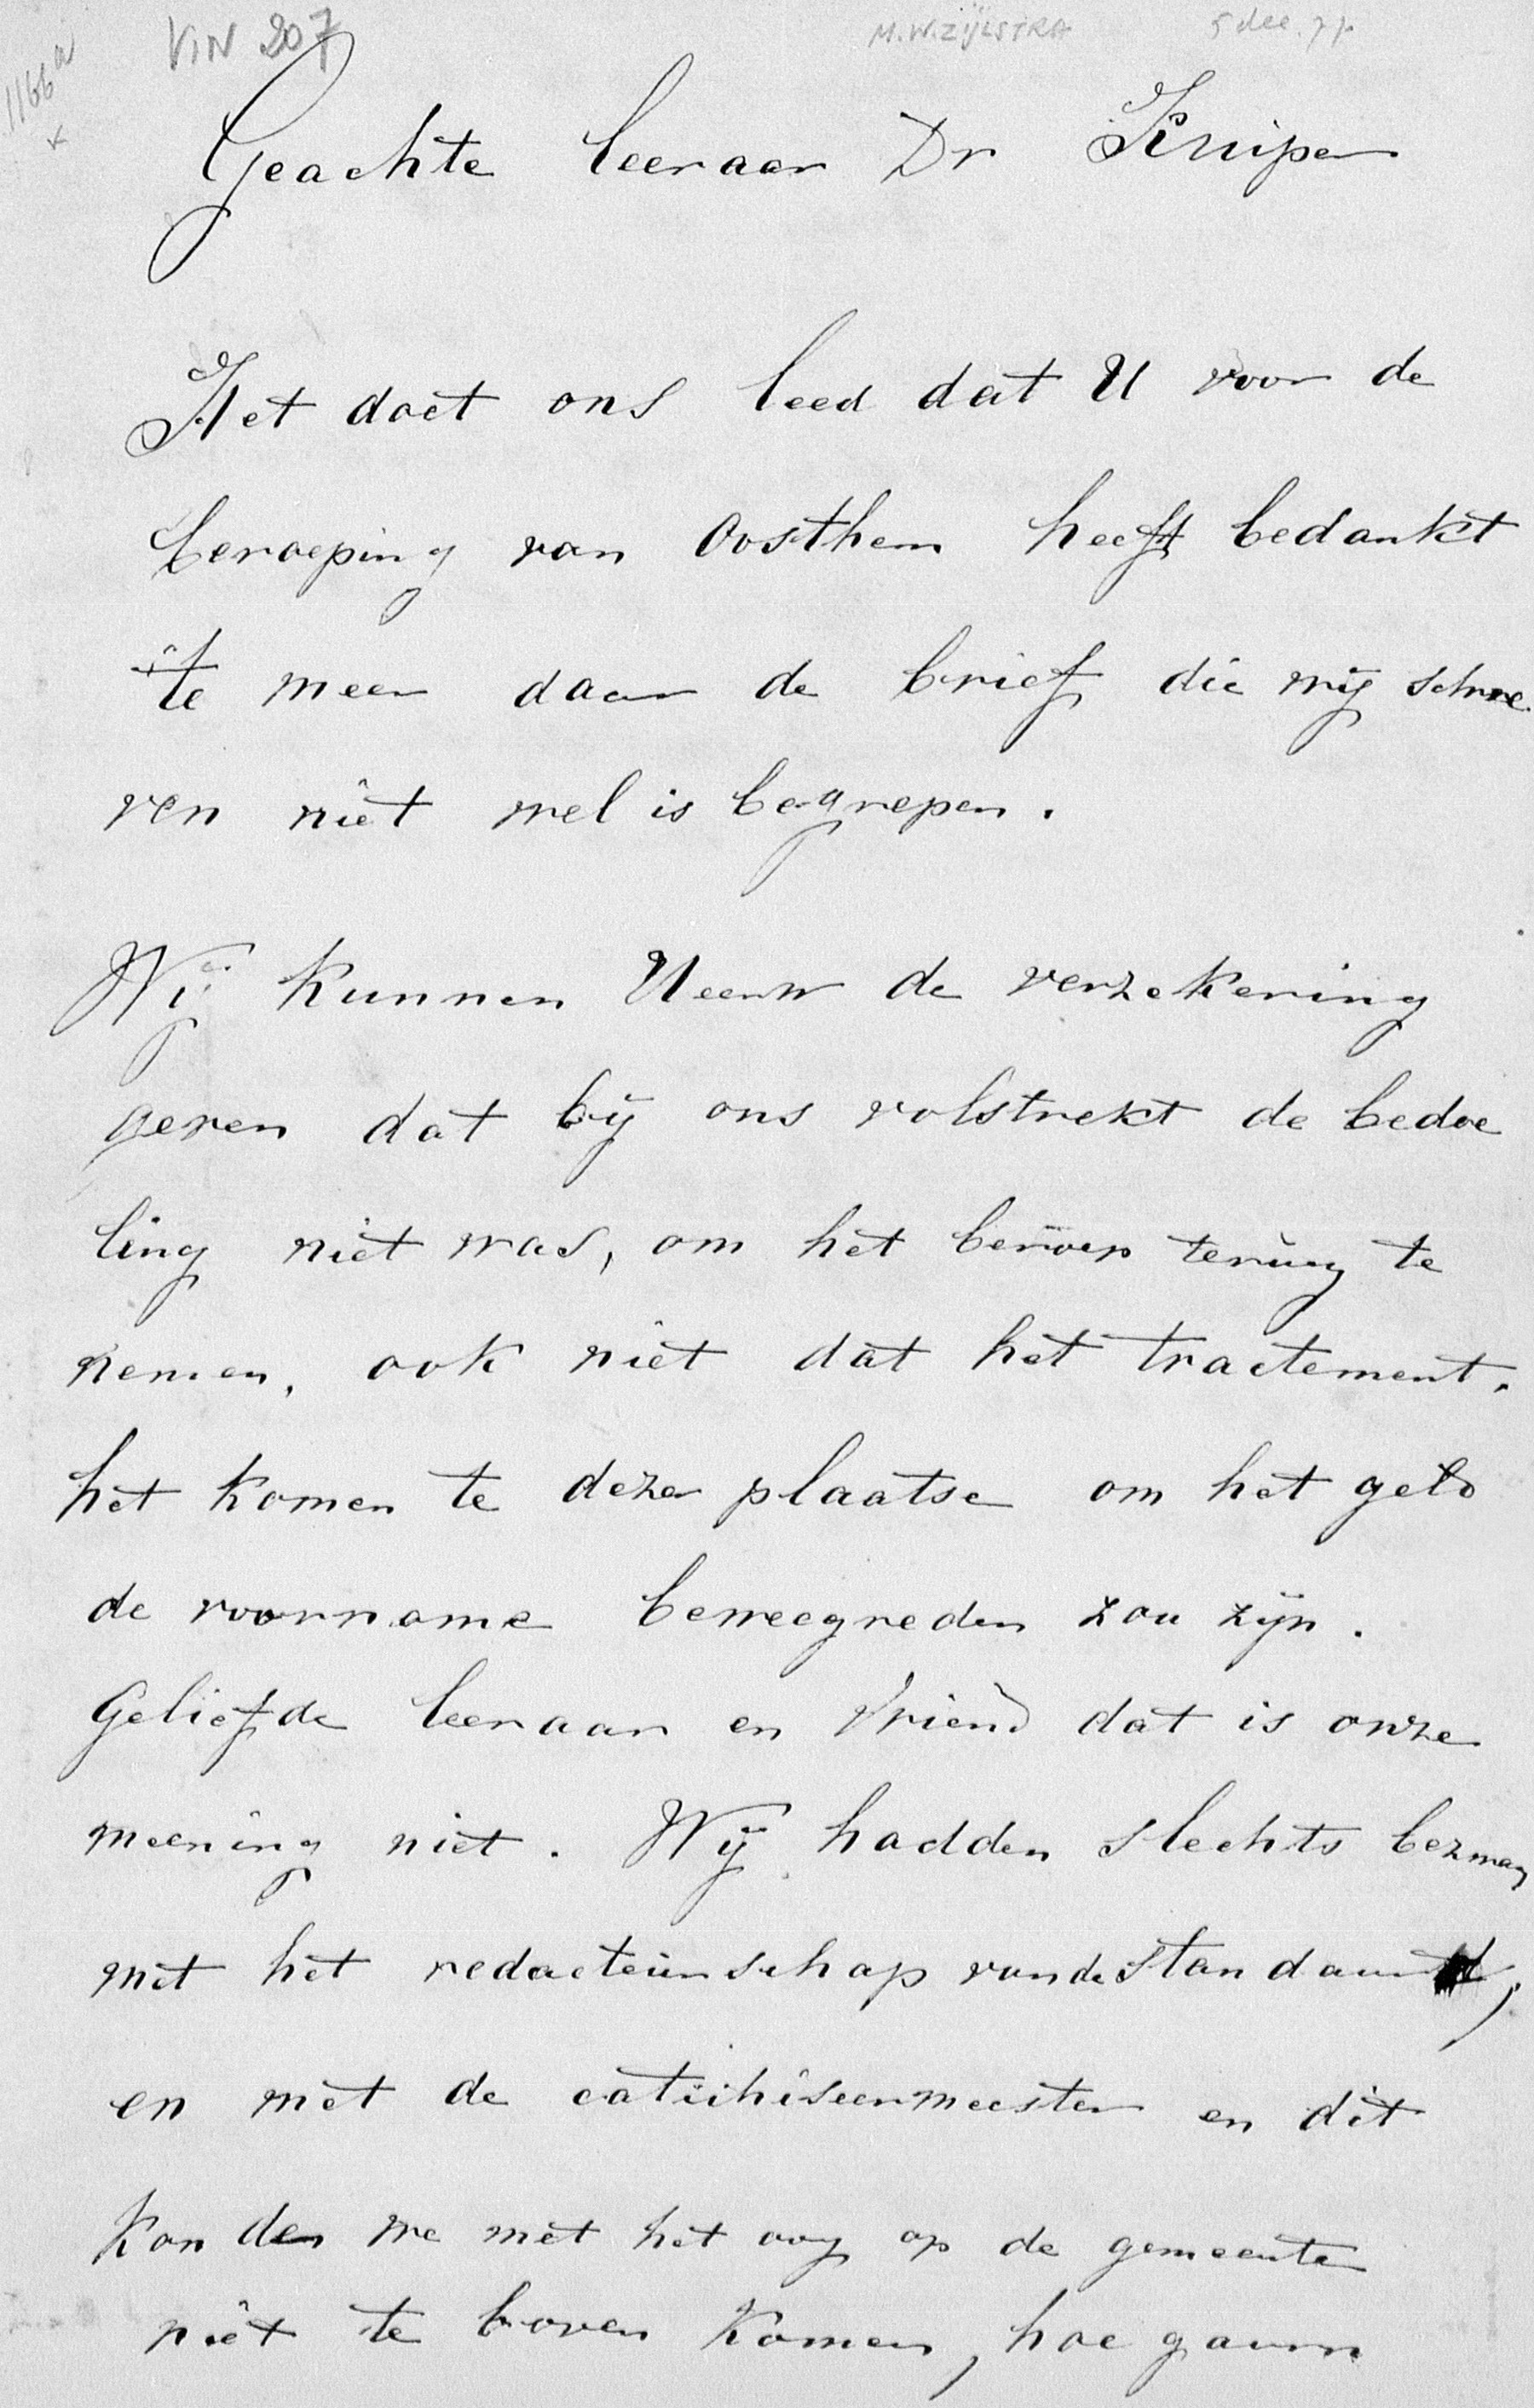 VIN 207 M.W. ZIJLSTRA 5 dec. 77.
1166a
x
Geachte leeraar Dr Kuiper
Het doet ons leed dat U voor de
beroeping van Oosthem heeft bedankt
te meer daar de brief die wij schre
ven niet wel is begrepen.
Wij kunnen Ueerw de verzekering
geven dat bij ons volstrekt de bedoe
ling niet was, om het beroep terug te
nemen, ook niet dat het tractement,
het komen te dezer plaatse om het geld
de voorname beweegreden zou zijn.
Geliefde leeraar en Vriend dat is onze
meening niet. Wij hadden slechts bezwaar
met het redacteurschap van de Standaard,
en met de catichiseermeester en dit
konden we met het oog op de gemeente
niet te boven komen, hoe gaarn